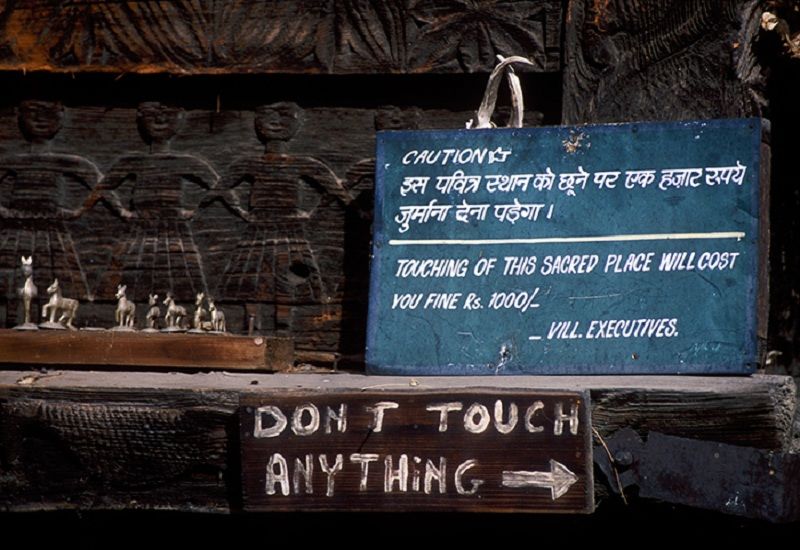 CAUTION☆
इस पवित्र स्थान को छूने पर एक हज़ार रूपये
जुर्माना देना पड़ेगा ।
TOUCHING OF THIS SACRED PLACE WILL COST
YOU FINE Rs. 1000/-
_ VILL. EXECUTIVES.
DON T TOUCH
ANYTHiNG →